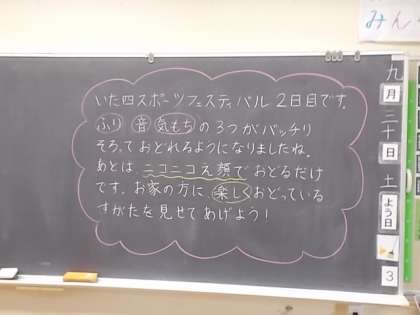 いた四スポーツフェスティバル2日目です。
ふり 音 気もちの3つがバッチリ
そろっておどれるようになりましたね。
あとは、ニコニコえ顔でおどるだけ
です。お家の方に、楽しくおどっている
すがたを見せてあげよう!
みん
九月三十日土よう日
3